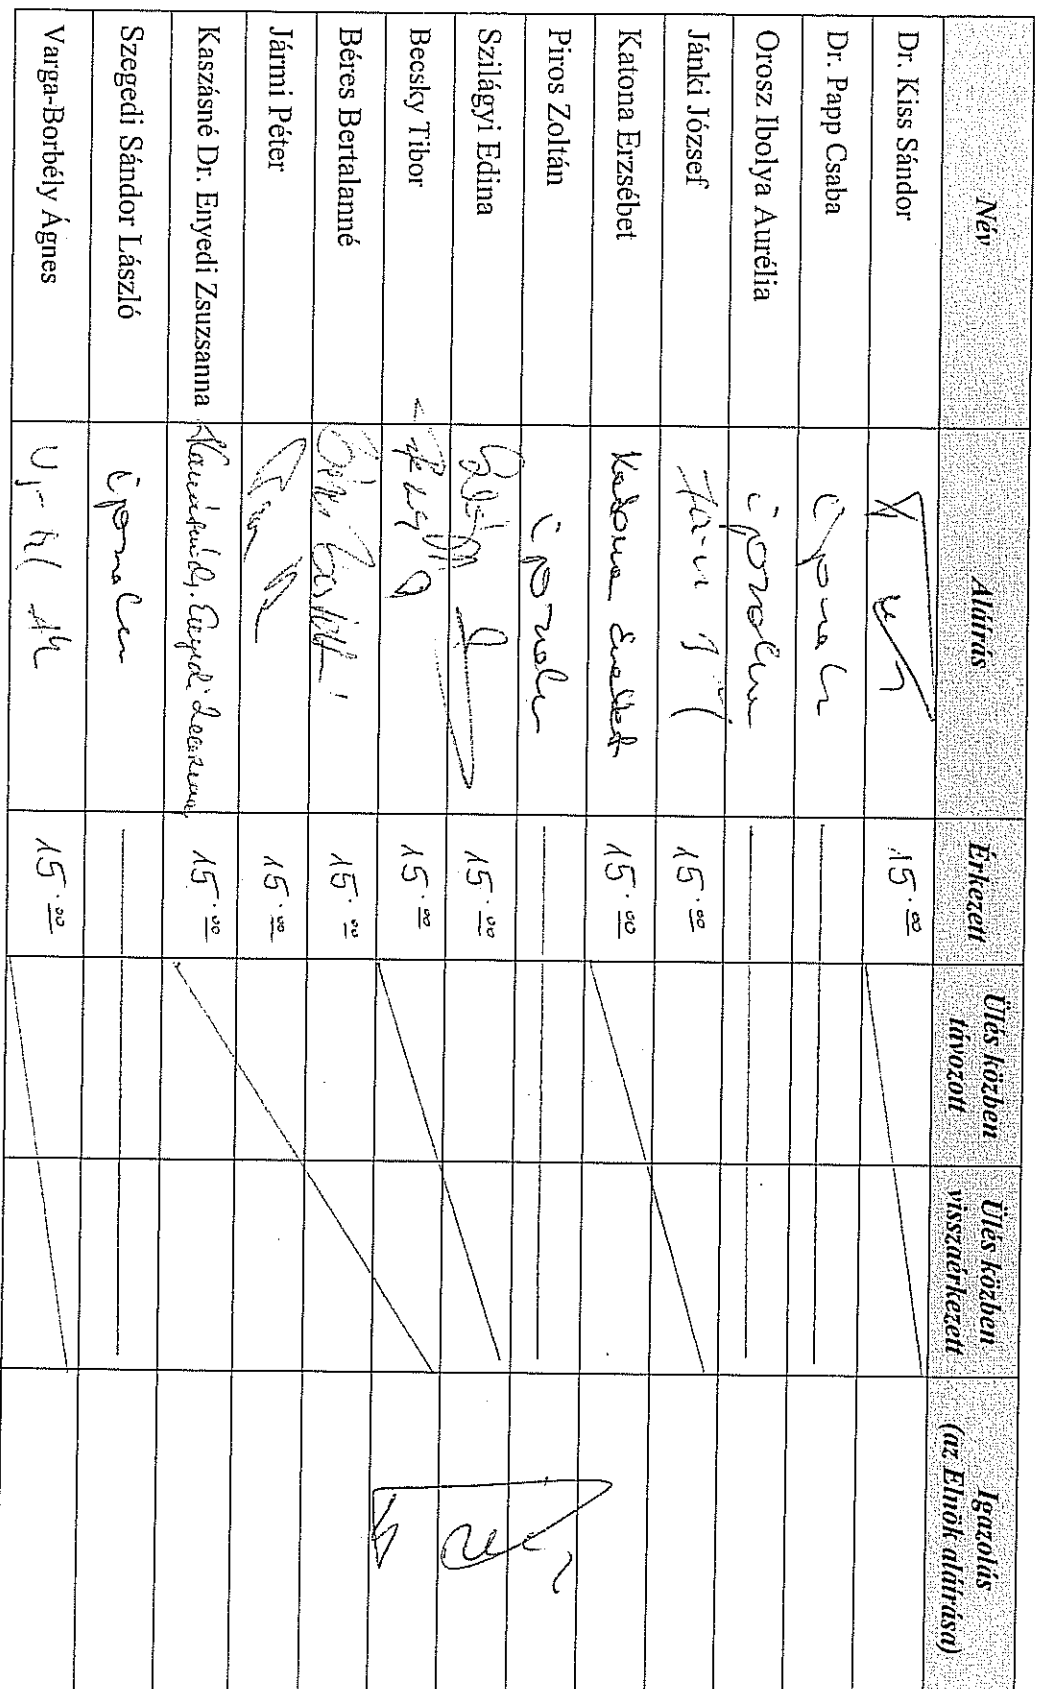 Név Aláírás Érkezett Ülés közben távozott Ülés közben visszaérkezett Igazolás (az Elnök aláírása)
Dr. Kiss Sándor 15.00
Dr. Papp Csaba
Orosz Ibolya Aurélia
Jánki József 15.00
Katona Erzsébet Katona Erzsébet 15.00
Piros Zoltán
Szilágyi Edina 15.00
Becsky Tibor 15.00
Béres Bertalanné 15.00
Jármi Péter 15.00
Kaszásné Dr. Enyedi Zsuzsanna 15.00
Szegedi Sándor László
Varga-Borbély Ágnes 15.00